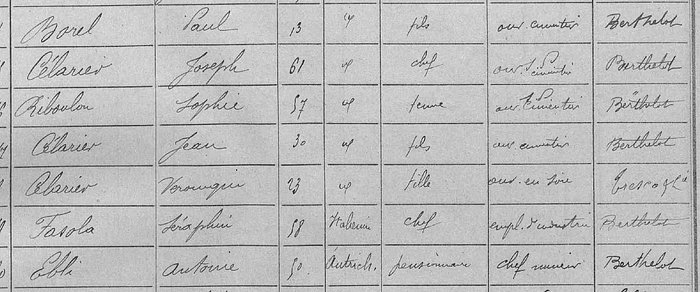 Borel Paul 13 " fils ouv. cimentier Berthelot
Célarier Joseph 61 " chef ouv. cimentier Berthelot
Riboulon Sophie 57 " femme ouv. cimentier Berthelot
Célarier Jean 30 " fils ouv. cimentier Berthelot
Célarier 23 " fille ouv. en soie
Fasola Séraphin 58 Italienne chef empl. d'industrie Berthelot
Ebli Antoine 50 Autrich. pensionnaire chef mineur Berthelot